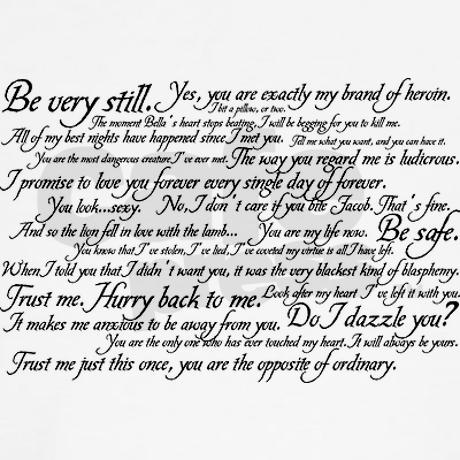 Be very still. Yes, you are exactly my brand of heroin.
I bit a pillow, or two.
The moment Bella's heart stops beating, I will be begging for you to kill me.
All of my best nights have happened since I met you. Tell me what you want, and you can have it.
You are the most dangerous creature I've ever met. The way you regard me is ludicrous.
I promise to love you forever every single day of forever.
You look...sexy. No, I don't care if you bite Jacob. That's fine.
And so the lion fell in love with the lamb... You are my life now. Be safe.
You know that I've stolen, I've lied, I've coveted my virtue is all I have left.
When I told you that I didn't want you, it was the very blackest kind of blasphemy.
Trust me. Hurry back to me. Look after my heart I've left it with you.
It makes me anxious to be away from you. Do I dazzle you?
You are the only one who has ever touched my heart. It will always be yours.
Trust me just this once, you are the opposite of ordinary.